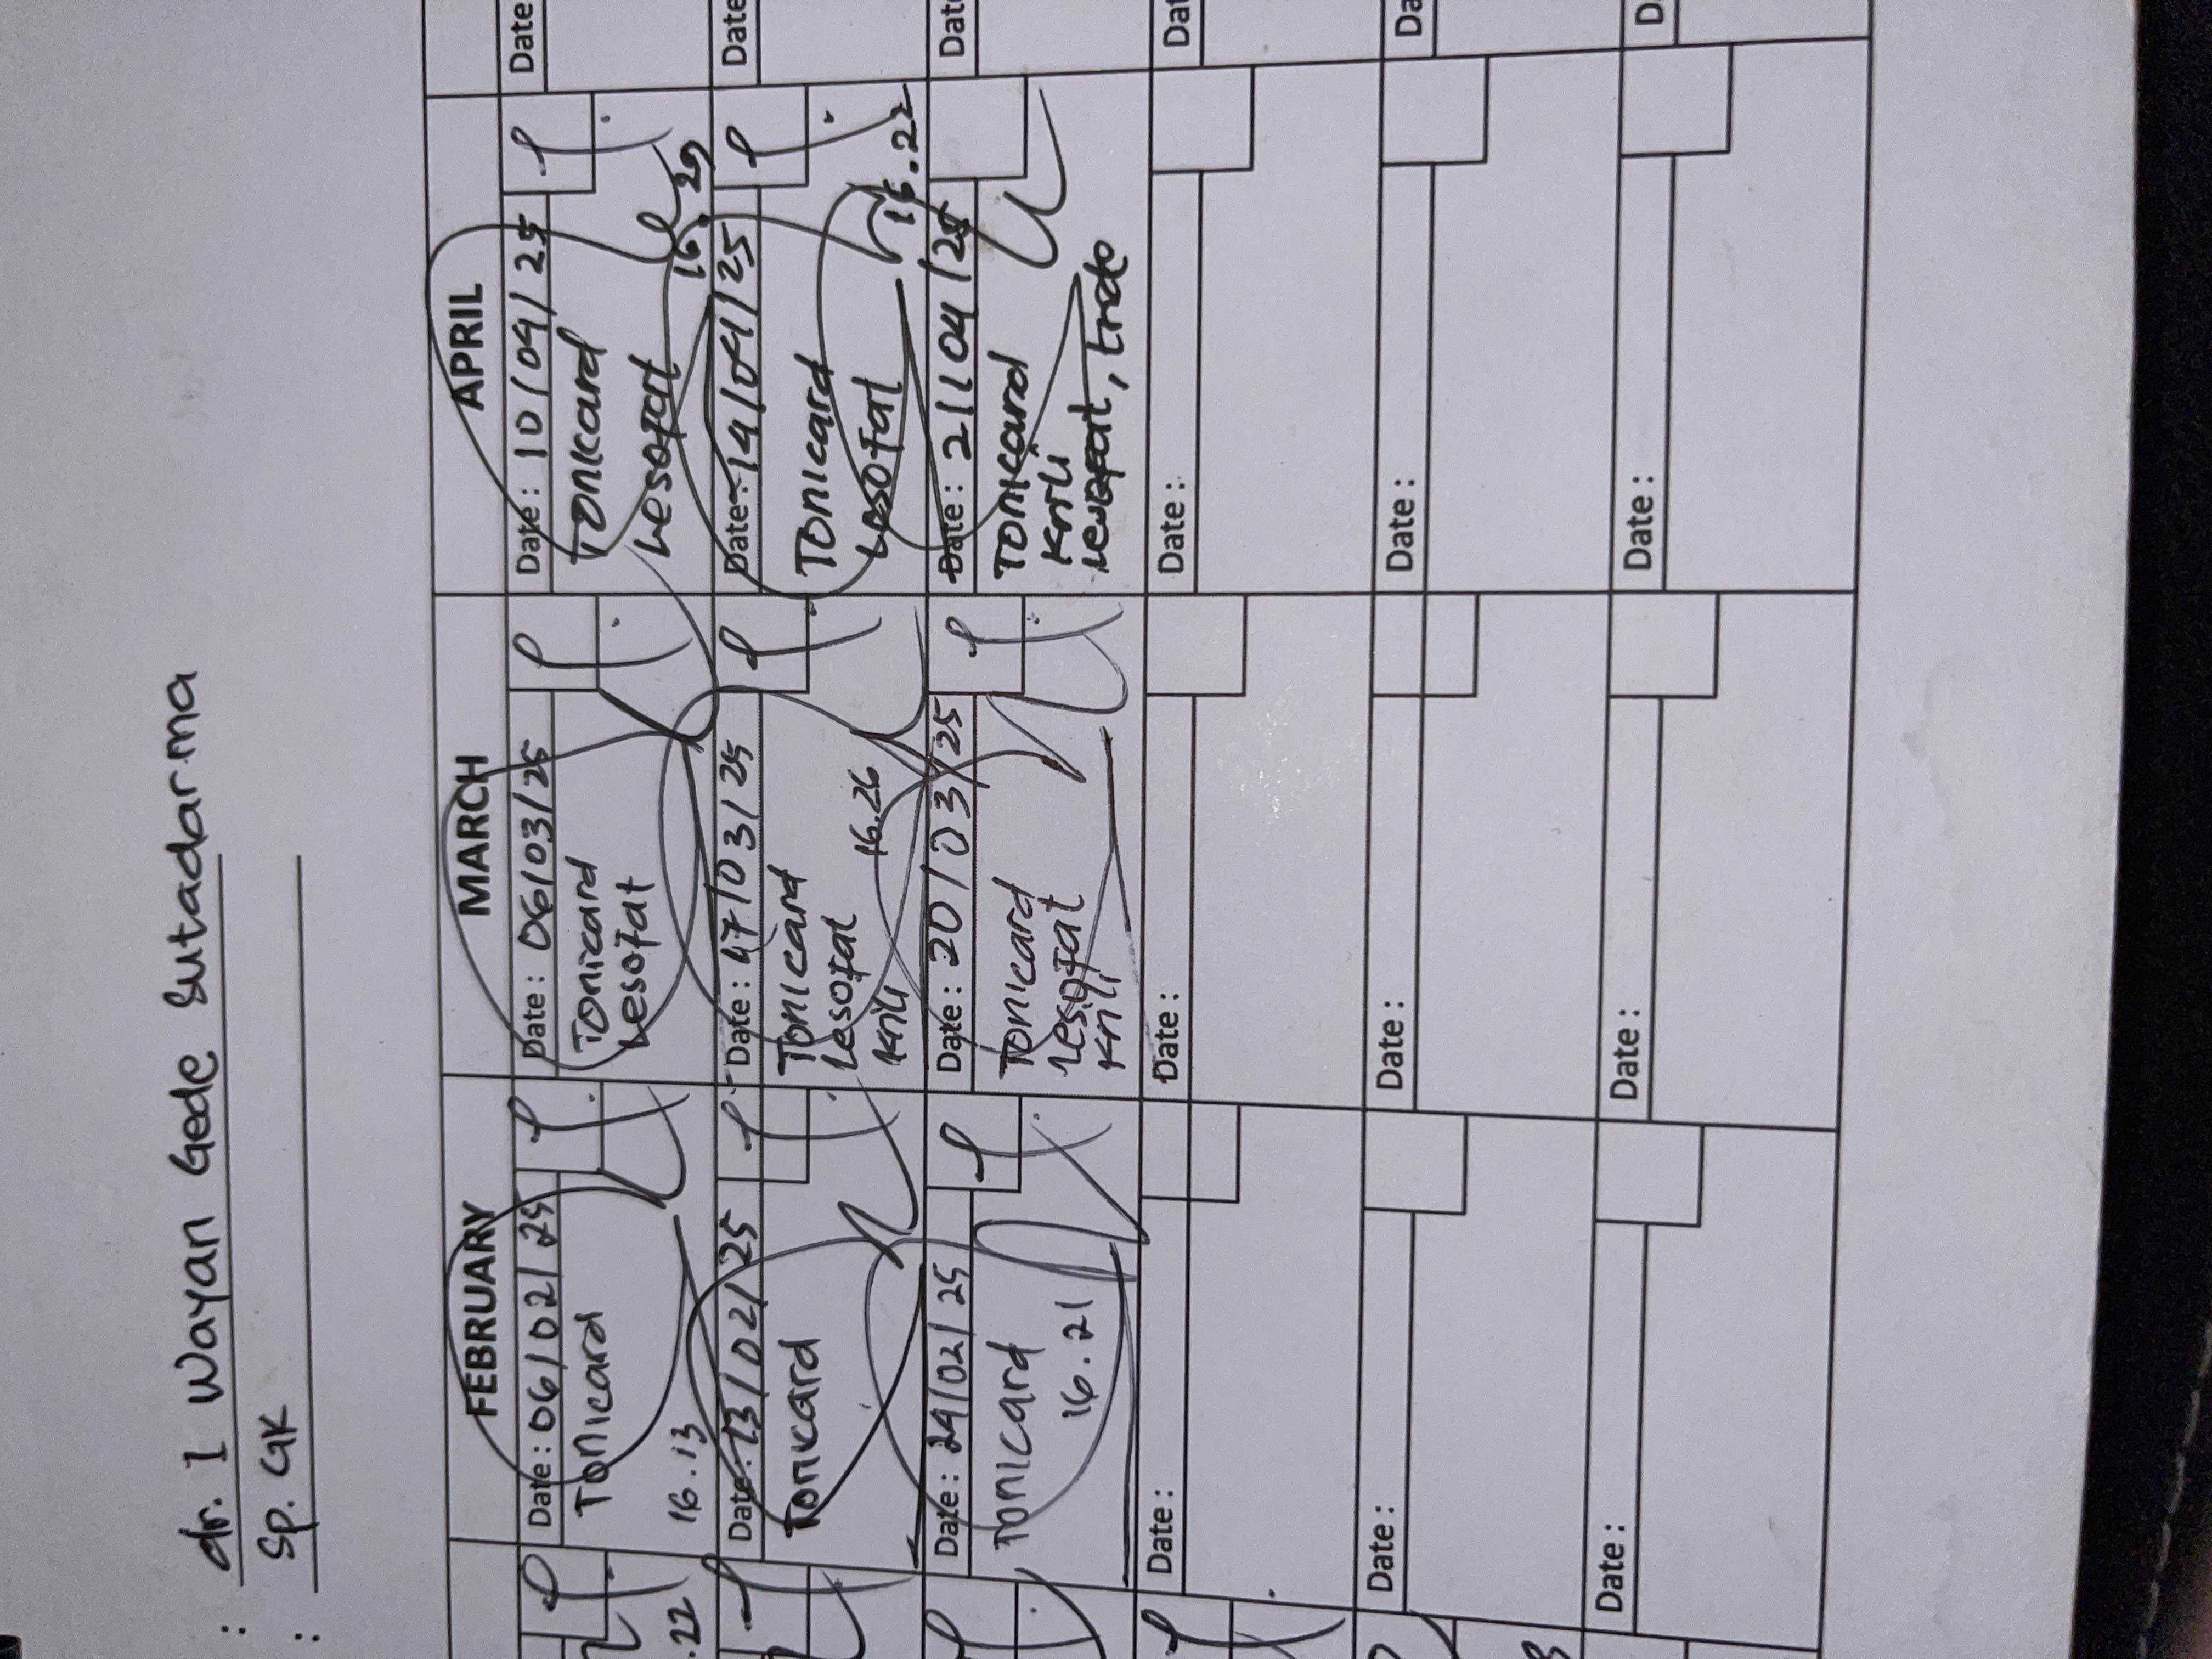 : dr. I Wayan Gede Sutadarma
: Sp. GK
FEBRUARY
MARCH
APRIL
Date : 06/02/25
Tonicard
16.13
Date : 06/03/25
Tonicard
Lesofat
Date : 10/04/25
Tonicard
Lesofat
16.29
Date
.22
Date : 13/02/25
Tonicard
Date : 17/03/25
Tonicard
Lesofat
Krili
16.26
Date : 14/04/25
Tonicard
Lesofat
16.22
Date
Date : 24/02/25
Tonicard
16.21
Date : 20/03/25
Tonicard
Lesofat
Krili
Date : 21/04/25
Tonicard
Krili
Lesofat,
Dat
Date :
Date :
Date :
Dat
Date :
Date :
Date :
Da
Date :
Date :
Date :
D